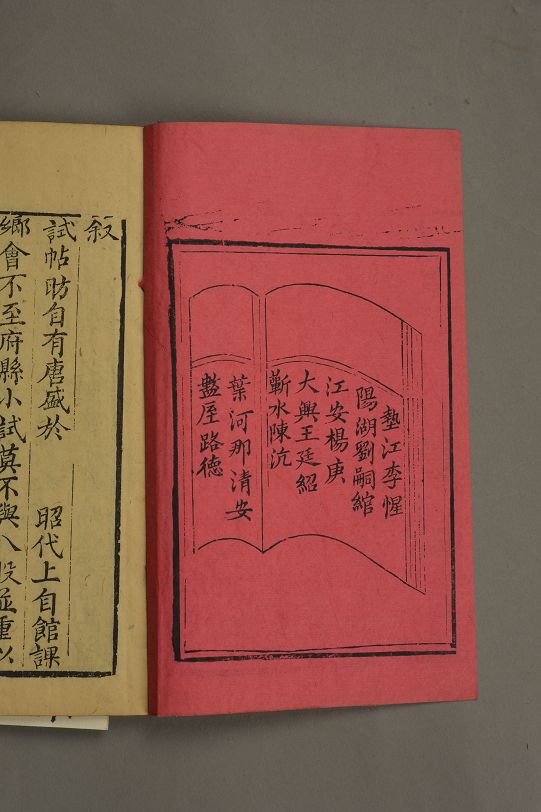 墊江李惺
陽湖劉嗣綰
江安楊庚
大興王廷紹
蘄水陳沆
葉河那清安
盩厔路德
叙
試帖昉自有唐盛於　昭代上自館課
鄉會不至府縣小試莫不與八股並重以